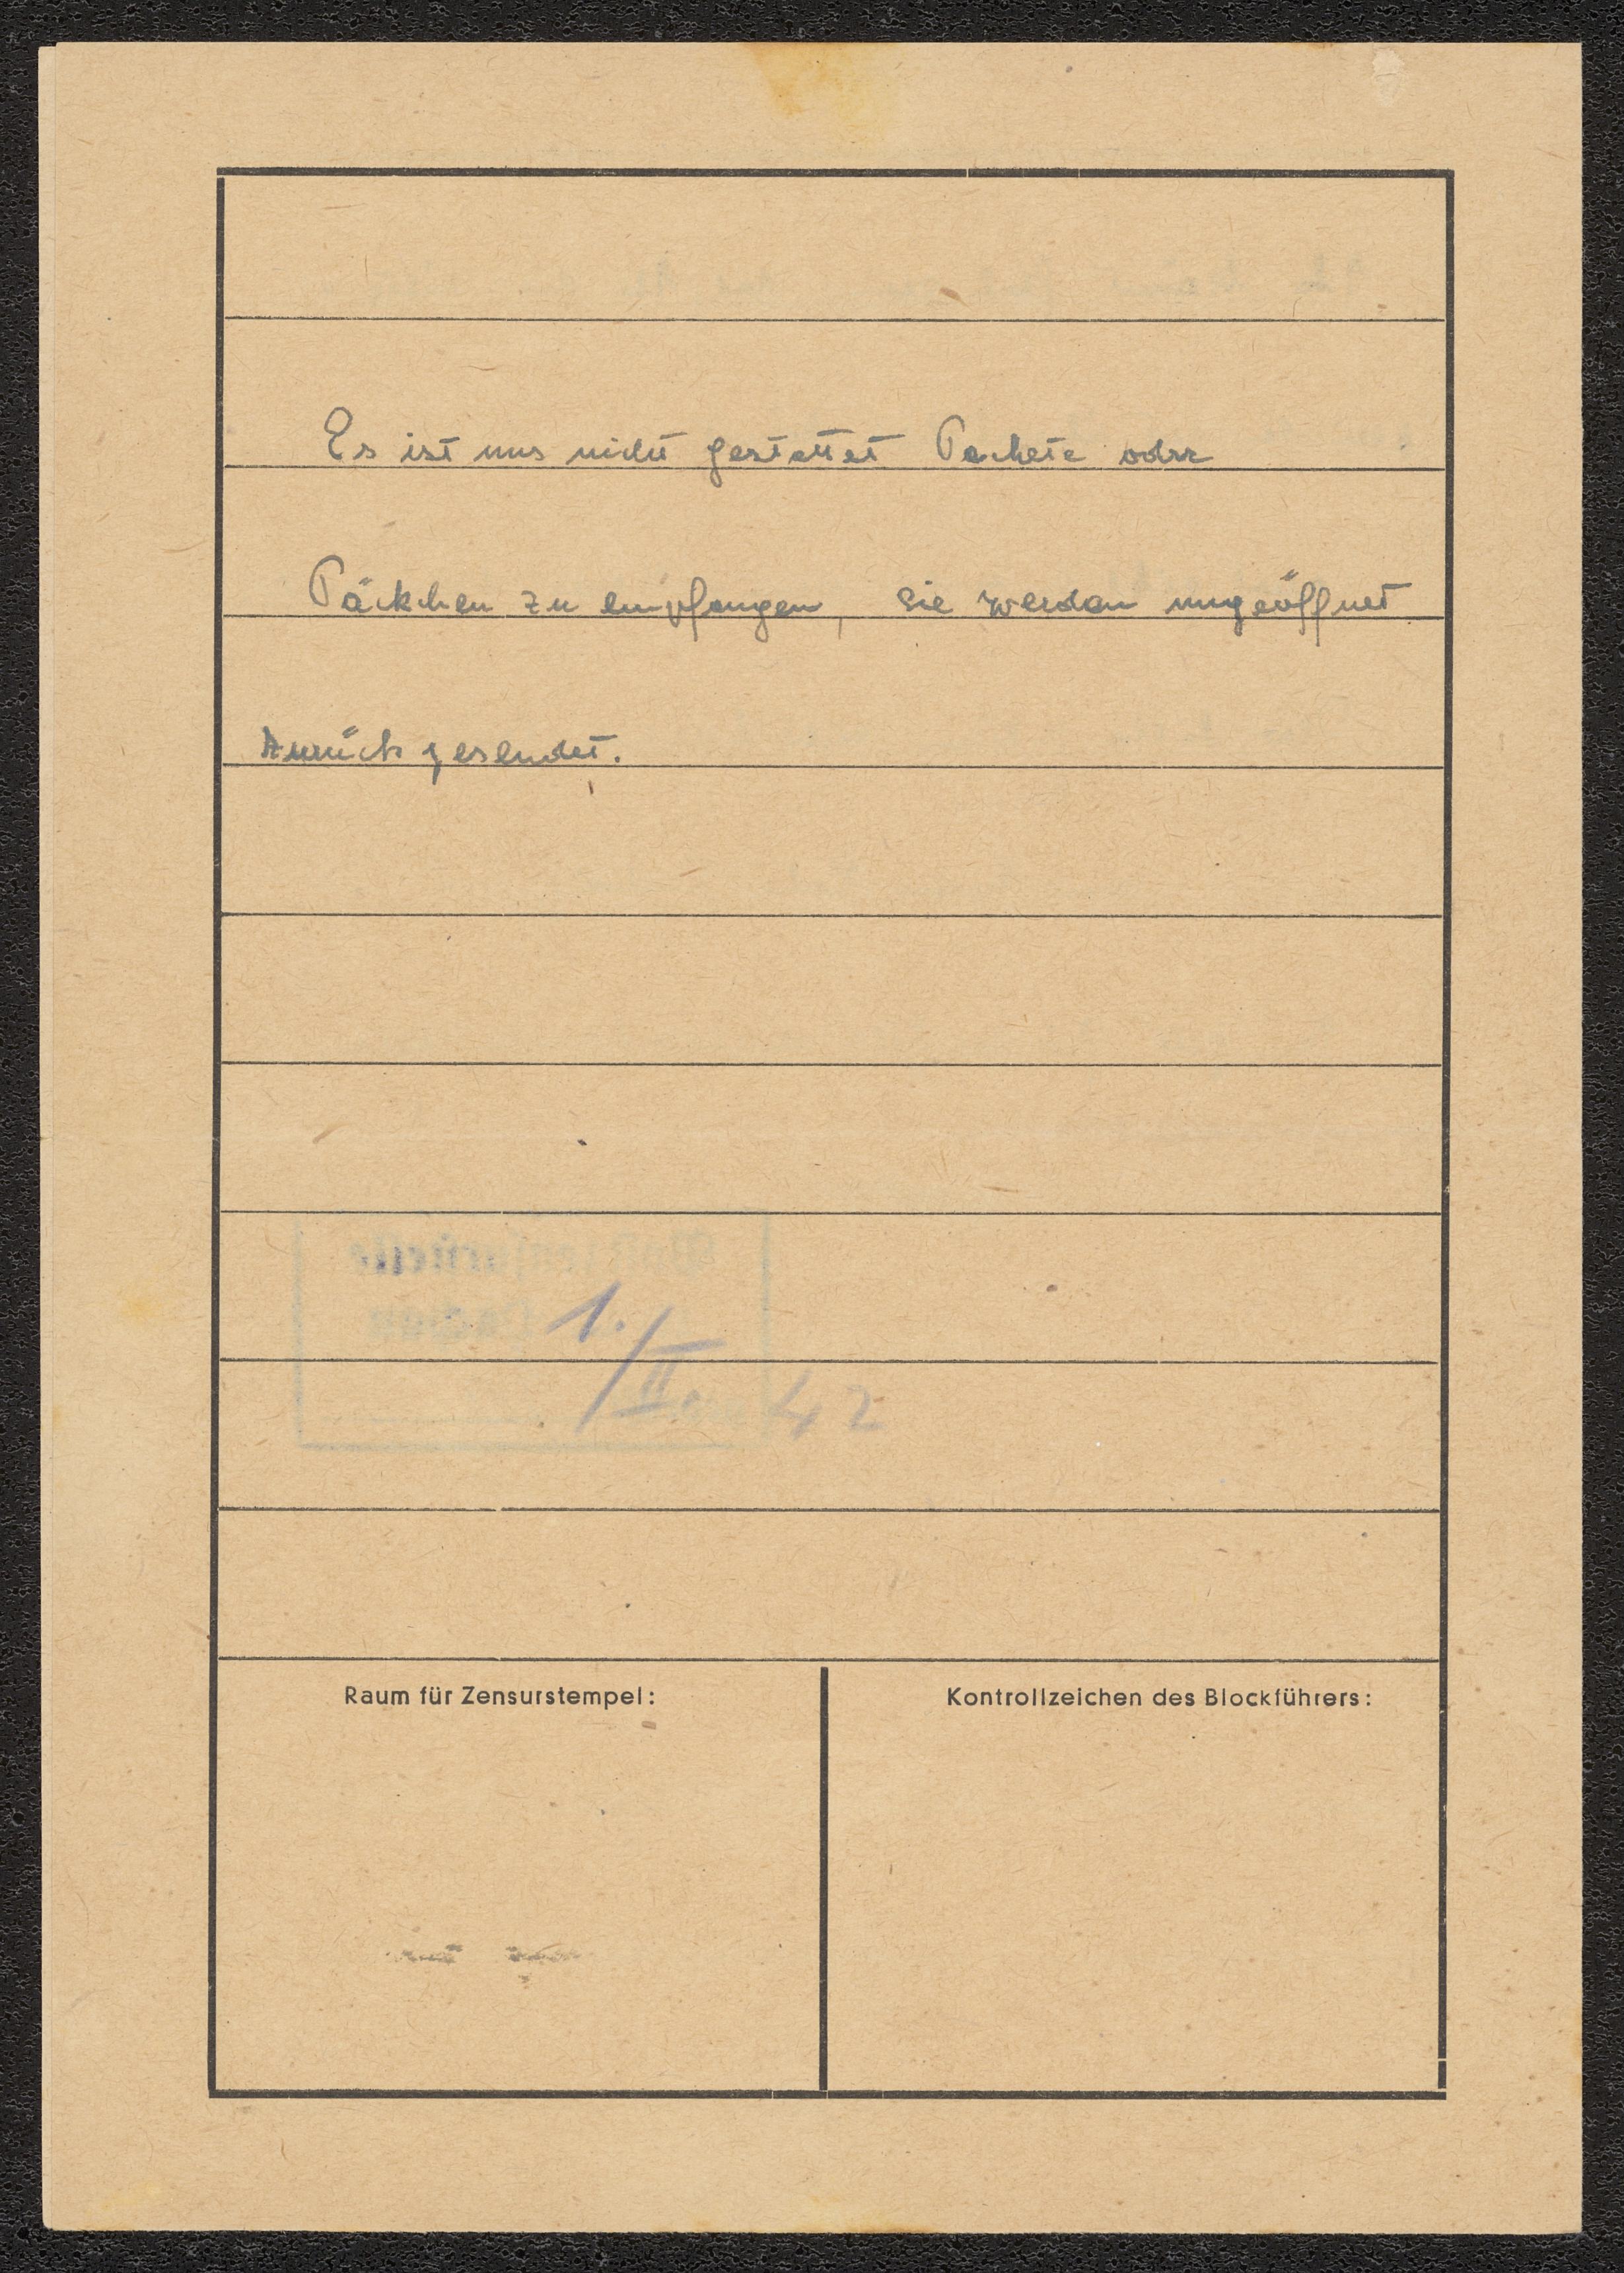 Es ist uns nicht gestattet Packete oder
Päckchen zu empfangen, sie werden ungeöffnet
zurück gesendet.
1./II. 42
Raum für Zensurstempel:
Kontrollzeichen des Blockführers: